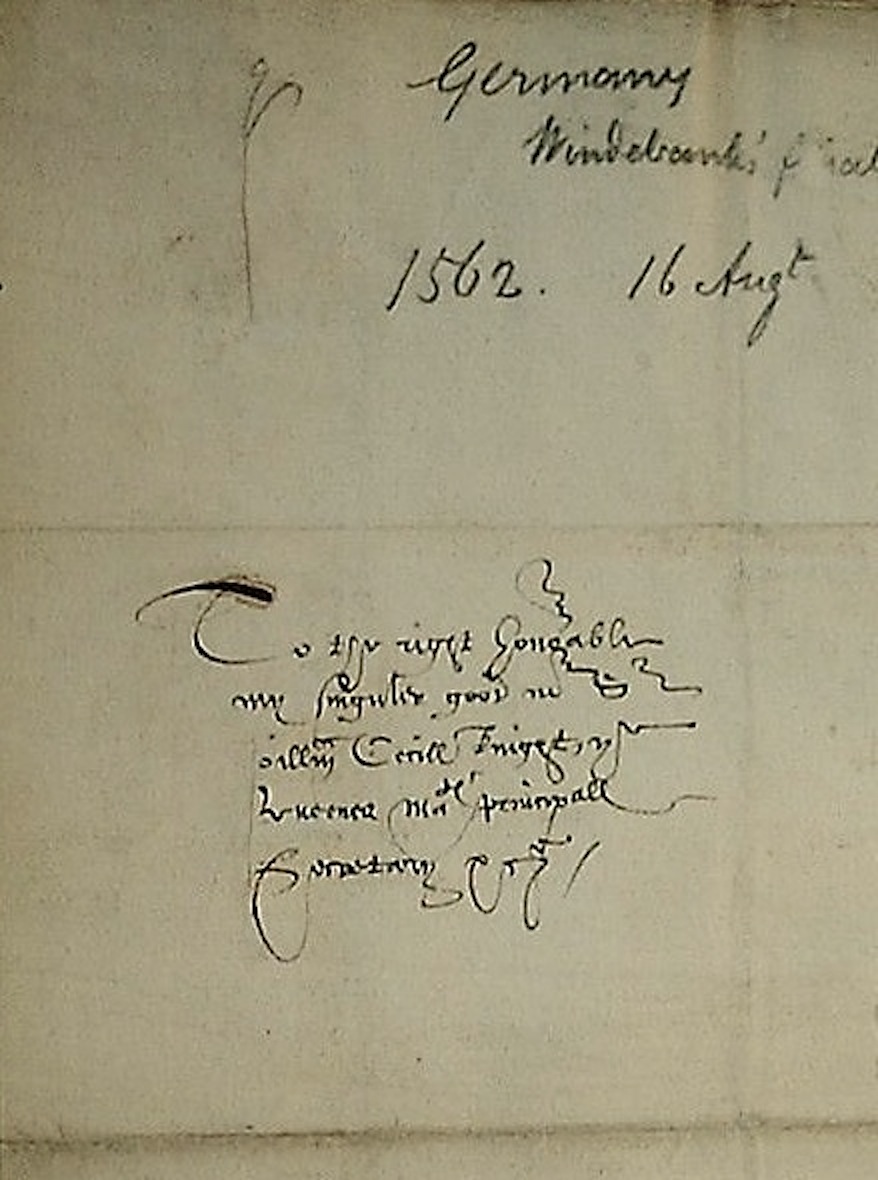 Germany
Windebank's
1562. 16 Augt
To the right honorable
my singuler good mr Sr
Willm Cecill knight, the
Queenes Mates principall
Secretary